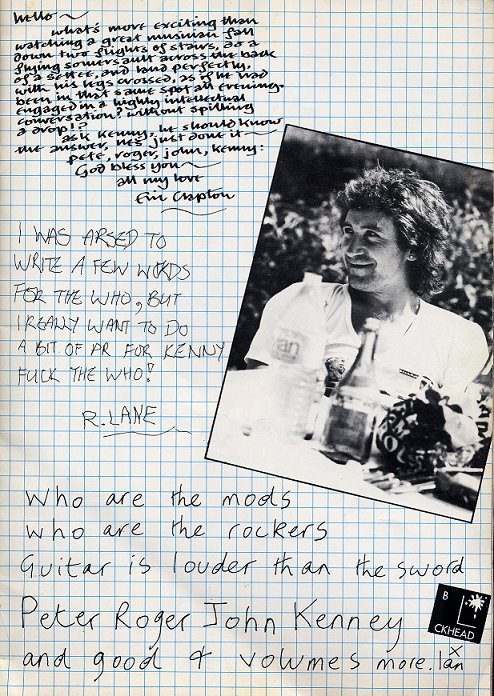 hello ~
what's more exciting than
watching a great musician fall
down two flights of stairs, do a
flying somersault across the back
of a settee, and land perfectly,
with his legs crossed, as if he had
been in that same spot all evening.
engaged in a highly intellectual
conversation? without spilling
a drop!?
ask Kenny, he should know
the answer, he's just done it ~
pete, roger, john, kenny:
God bless you ~
all my love
Eric Clapton
I WAS ARSED TO
WRITE A FEW WORDS
FOR THE WHO, BUT
I REALLY WANT TO DO
A BIT OF PR FOR KENNY
FUCK THE WHO!
R. LANE
Who are the mods
who are the rockers
Guitar is louder than the sword
Peter Roger John Kenney
and good 4 volumes more. Ian
x
B
CKHEAD